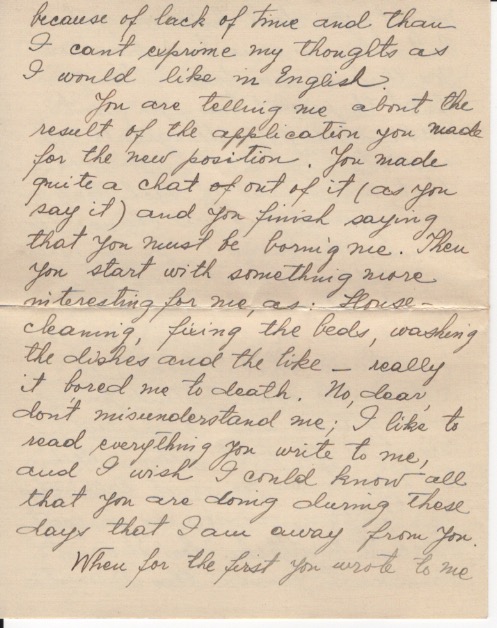 because of lack of time and than
I cant exprime my thoughts as
I would like in English.
You are telling me about the
result of the application you made
for the new position. You made
quite a chat of out of it (as you
say it) and you finish saying
that you must be bornig me. Then
you start with something more
interesting for me, as: House-
cleaning, fixing the beds, washing
the dishes and the like – really
it bored me to death. No, dear,
don't misunderstand me; I like to
read everything you write to me,
and I wish I could know all
that you are doing during these
days that I am away from you.
When for the first you wrote to me